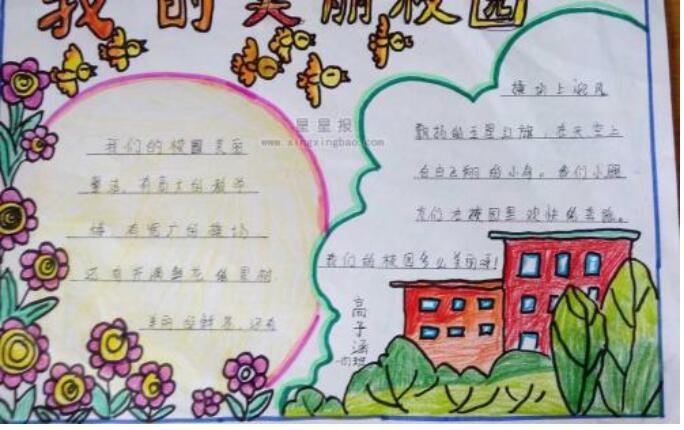 我的美丽校园
星星报
www.xingxingbao.com
我们的校园美丽
整洁,有高大的教学
楼,有宽广的操场
还有开满鲜花的
美丽的鲜花,还有
操场上
飘扬的五星红旗,在天空上
自由飞翔的小鸟。我们小朋
友们在校园里欢快的
我们的校园多么美丽呀!
高子涵
一(2)班